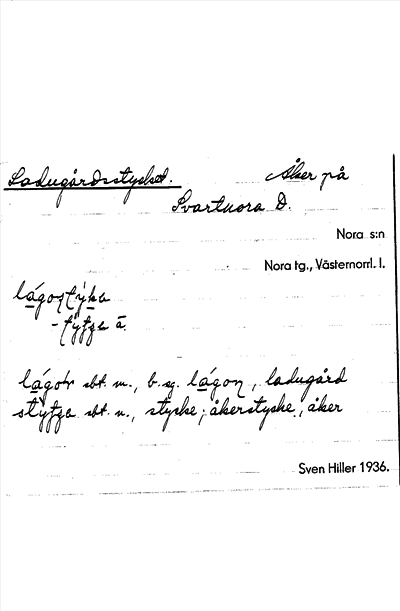 Ladugårdsstycket. Åker på
Svartnora D.
Nora s:n
Nora tg., Västernorrl. l.
lágostýka
ā.
sbt. m., b. sg. lágon, ladugård
sbt. n., stycke; åkerstycke, åker
Sven Hiller 1936.